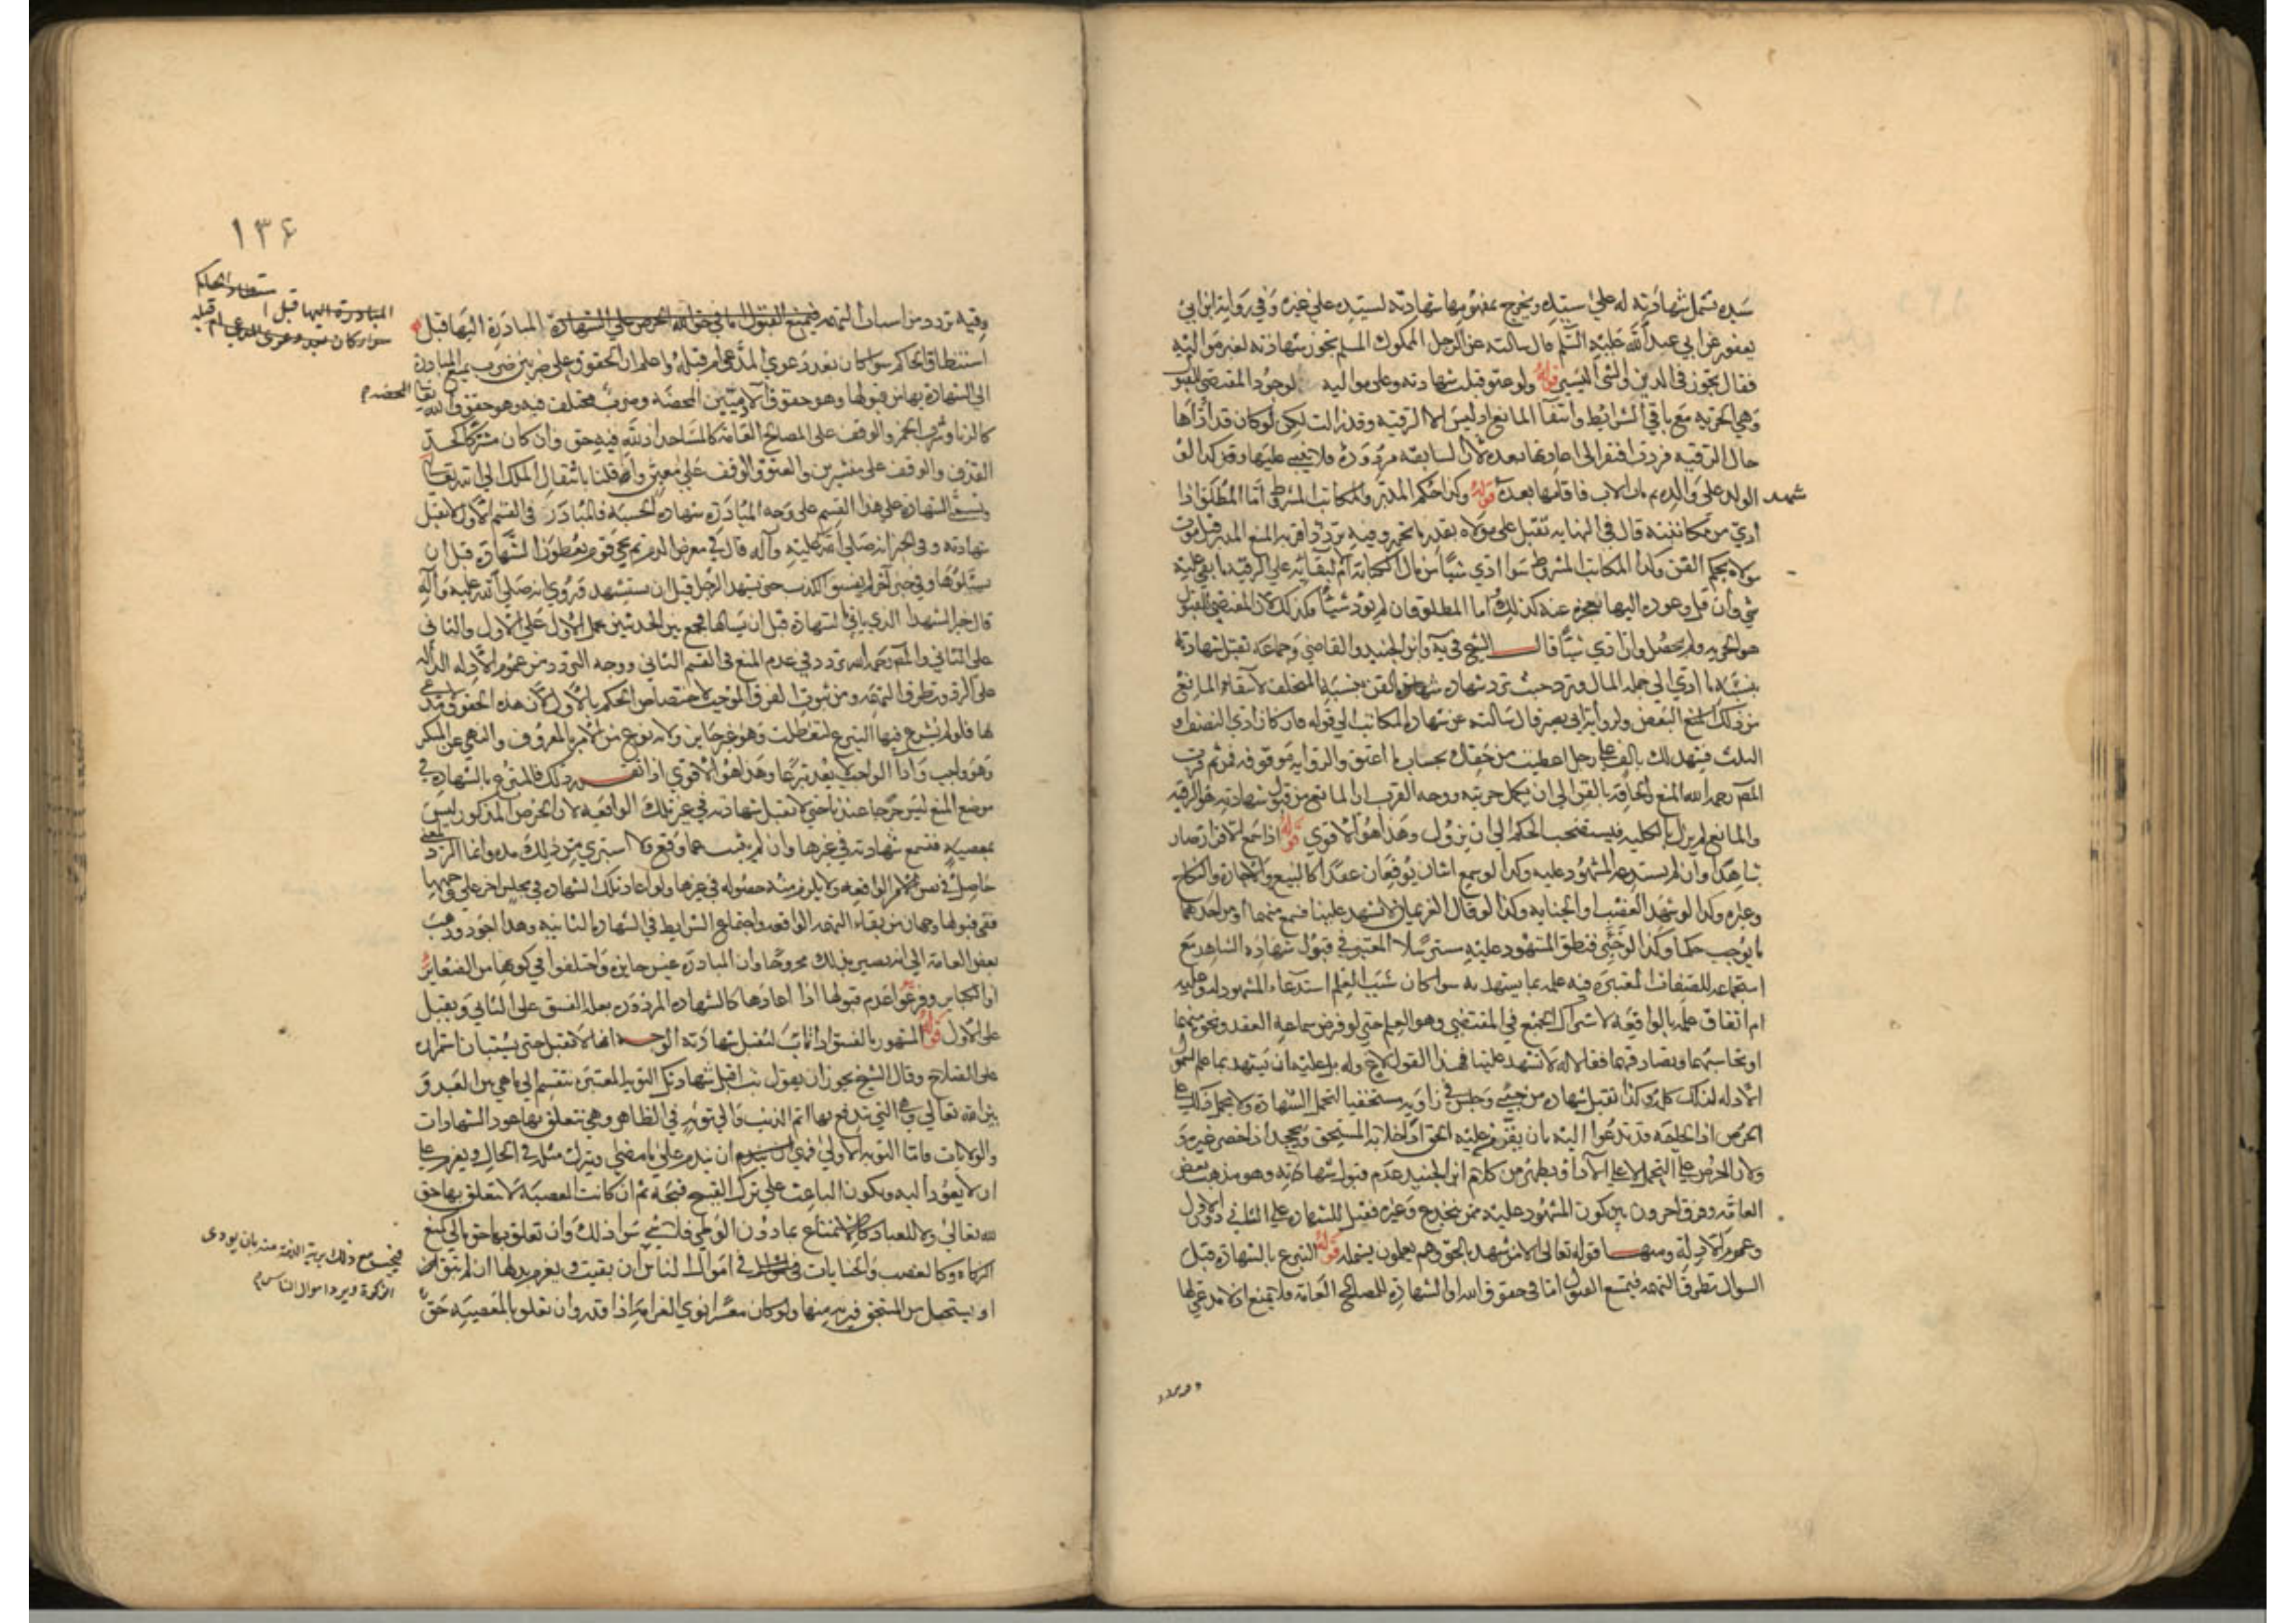 سيده تشمل شهادته له على سيده ويخرج بمفهومها شهادته لسيده على غيره وفي رواية ابن ابي
يعفور عن ابي عبد الله عليه السلم قال سالته عن الرجل المملوك المسلم تجوز شهادته لغير مواليه
فقال تجوز في الدين والشئ اليسير قوله ولو عتق قبلت شهادته وعلى مواليه لوجود المقتضي للقبول
وهي الحرية مع باقي الشرائط وانتفا المانع اذ ليس الا الرقية وقد زالت لكن لو كان قد اداها
حال الرقية فردت افتقر الى اعادتها بعده لان السابقة مردودة فلا عليها وكذا لو
شهد الولد على والده ثم مات الاب فاقامها بعده قوله وكذا حكم المدبر والمكاتب المشروط اما المطلق اذا
ادى من مكاتبته قال في النهاية تقبل على مولاه بقدر ما تحرر وفيه تردد اقربه المنع المدبر قبل موت
مولاه بحكم القن وكذا المكاتب المشروط سوا ادي شيأ من مال الكتابة ام لا لبقائه على الرقية ما بقي عليه
شئ وان قل وعوده اليها بعجزه عنه كذلك اما المطلق فان لم يؤد شيئا فكذلك لان المقتضي للقبول
هو الحرية ولم يحصل وان ادي شيأ قال الشيخ في ية وابن الجنيد والقاضي وجماعة تقبل شهادته
بنسبة ما ادي الى جملة المال وترد حيث ترد شهادة القن بنسبة المتخلف لانتفاء المانع
من ذلك البعض ولرواية ابي بصير قال سالته عن شهادة المكاتب الى قوله فان كان ادي النصف او
الثلث فشهد لك بالف على رجل اعطيت من حقك بحساب ما اعتق والرواية موقوفة فمن ثم قرب
المص رحمه الله المنع والحاقه بالقن الى ان يكمل حريته ووجه القرب ان المانع من قبول شهادته هو الرقية
والمانع لم يزل بالكلية فيستصحب الحكم الى ان يزول وهذا هو الاقوي قوله اذا سمع الاقرار صار
شاهدا وان لم يستدعه المشهود عليه وكذا لو سمع اثنان يوقعان عقدا كالبيع والاجارة والنكاح
وغيره وكذا لو شهد الغصب او الجناية وكذا لو قال الغريمان لا تشهد علينا فسمع منهما او من احدهما
ما يوجب حكما وكذا لو خبئ فنطق المشهود عليه مسترسلا المعتبر في قبول شهادة الشاهد مع
استجماعه للصفات المعتبرة فيه علمه بما يشهد به سوا كان سبب العلم استدعاء المشهود له وعليه
ام اتفاق علمه بالواقعة لاشتراك الجميع في المقتضي وهو العلم حتى لو فرض سماعه العقد ونحوه منهما
او تحاسبهما وتصادقهما فقالا له لا تشهد علينا فهذا القول لاغ وله بل عليه ان يشهد بما علم لشمول
الادلة لذلك كله وكذا تقبل شهادة من خبئ وجلس في زاوية مستخفيا لتحمل الشهادة ولا يحمل ذلك على
الحرص اذ الحاجة قد تدعوا اليه بان يقر من عليه الحق اذا خلا به المستحق ويجحد اذا حضر غيره و
ولان الحرص على التحمل لا على الاداء ويظهر من كلام ابن الجنيد عدم قبول شهادته وهو مذهب بعض
العامة وفرق اخرون بين كون المشهود عليه ممن ينخدع وغيره فقبل الشهادة على الثاني دون الاول
وعموم الادلة ومنها قوله تعالى الا من شهد بالحق وهم يعلمون يشمله قوله التبرع بالشهادة قبل
السوال تطرق التهمة فيمنع القبول اما في حقوق الله او الشهادة للمصالح العامة فلا يمنع اذ لا مدعي لها
۱۳۶
وفيه تردد من اسباب التهمة المبادرة اليها قبل
استنطاق الحاكم سوا كان بعد دعوي المدعي ام قبله واعلم ان الحقوق على ضربين ضرب يمنع المبادرة
الى الشهادة بها من قبولها وهو حقوق الادميين المحضة وضرب مختلف فيه وهو حقوق الله تعالى المحضة
كالزنا وشرب الخمر والوقف على المصالح العامة كالمساجد او لله فيه حق وان كان مشتركا كحد
القذف والوقف على منتشرين والعتق والوقف على معين وان قلنا بانتقال الملك الى الله تعالى
وتسمى الشهادة على هذا القسم على وجه المبادرة شهادة الحسبة فالمبادر في القسم الاول لا تقبل
شهادته وفي الخبر انه صلى الله عليه وآله قال في معرض الذم ثم يجئ قوم يعطون الشهادة قبل ان
يسئلوها وفي خبر آخر ثم يفشو الكذب حتى يشهد الرجل قبل ان يستشهد وروي انه صلى الله عليه وآله
قال خير الشهدا الذي ياتي بالشهادة قبل ان يسالها فجمع بين الحديثين بحمل الاول على الاول والثاني
على الثاني والمص رحمه الله تردد في عدم المنع في القسم الثاني ووجه التردد من عموم الادلة الدالة
على الرد وتطرق التهمة ومن ثبوت الفرق الموجب لاختصاص الحكم بالاول لان هذه الحقوق لا مدعي
لها فلو لم يشرع فيها التبرع لتعطلت وهو غير جايز ولانه نوع من الامر بالمعروف والنهي عن المنكر
وهو واجب واداء الواجب لا يعد تبرعا وهذا هو الاقوي اذا تقرر ذلك فالتبرع بالشهادة في
موضع المنع ليس جرحا عندنا حتى لا تقبل شهادته في غير تلك الواقعة لان الحرص المذكور ليس
بمعصية فتسمع شهادته في غيرها
حاصل في نفس الامر الواقعة ولا يلزم منه حصوله في غيرها ولو اعاد تلك الشهادة في مجلس اخر على وجهها
ففي قبولها وجهان من بقاء التهمة الواقعة واجتماع الشرايط في الشهادة الثانية وهذا اجود وذهب
بعض العامة الى انه يصير بذلك مجروحا وان المبادرة غير جايزة واختلفوا في كونها من الصغائر
او الكبائر وفرعوا عدم قبولها اذا اعادها كالشهادة المردودة بعلة الفسق على الثاني ويقبل
على الاول قوله المشهور بالفسق اذا تاب لتقبل شهادته الوجه انها لا تقبل حتى يستبان استمراره
على الصلاح وقال الشيخ يجوز ان يقول تب اقبل شهادتك التوبة المعتبرة تنقسم الى ما هي بين العبد و
بين الله تعالى وهي التي تندفع بها اثم الذنب والى توبة في الظاهر وهي تتعلق بها عود الشهادات
والولايات فاما التوبة الاولى فهي ان يندم على ما مضى ويترك مثله في الحال ويعزم على
ان لا يعود اليه ويكون الباعث على ترك القبيح قبحه ثم ان كانت المعصية لا يتعلق بها حق
لله تعالى ولا للعباد كالاستمتاع بما دون الوطي فلا شئ سوا ذلك وان تعلق بها حق مالي كمنع
الزكاة وكالغصب والجنايات في اموال الناس ان بقيت ويغرم بدلها ان لم تبق
او يستحل من المستحق فيبريه منها ولو كان معسرا ينوي الغرامة اذا قدر وان تعلق بالمعصية حق
المبادرة اليها قبل
سوا كان بعد دعوى المدعى ام قبله
فيجب مع ذلك برية الذمة منه بان يودى
الزكوة ويرد اموال الناس